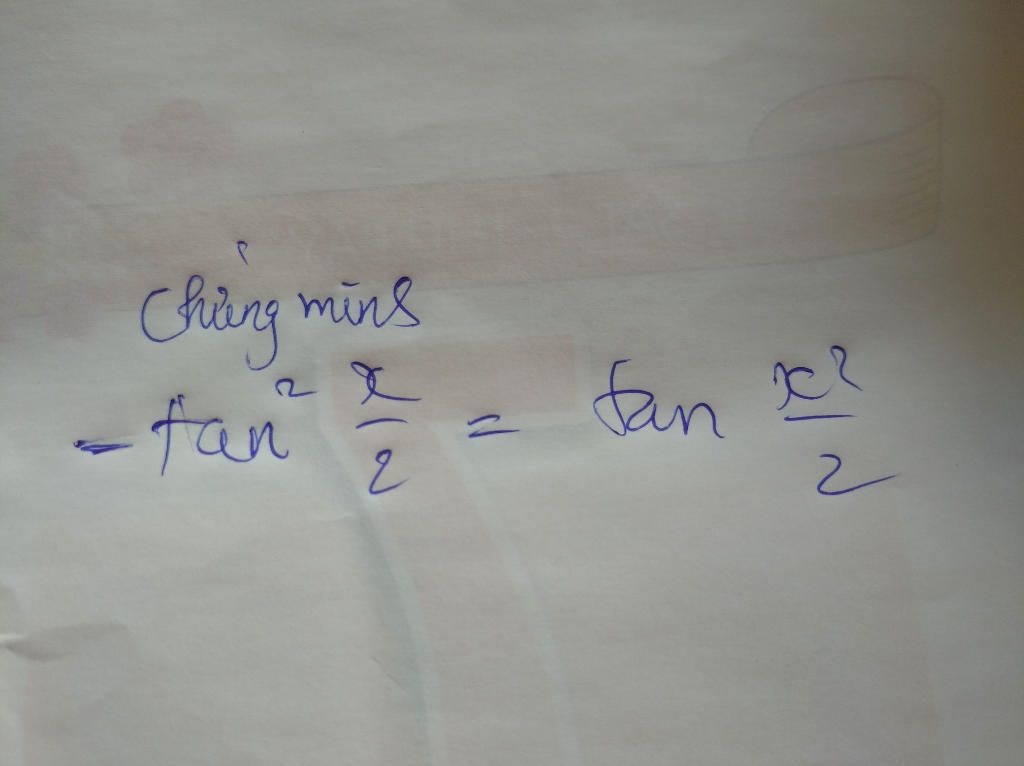 Chứng minh
- tan² x/2 = tan x²/2